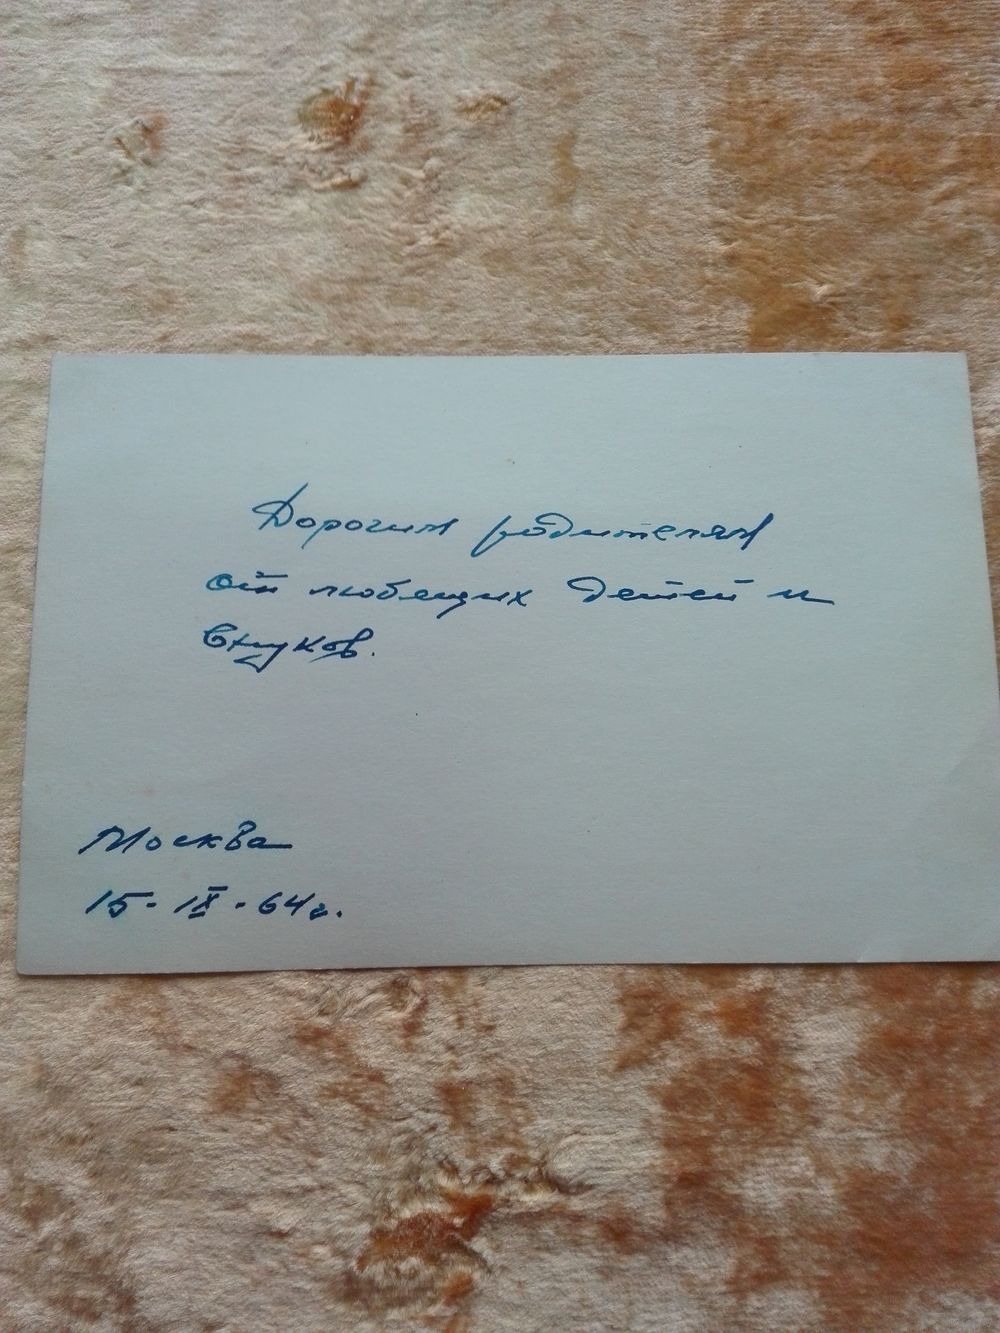 Дорогим родителям
от любящих детей и
внуков.
Москва
15-IX-64г.